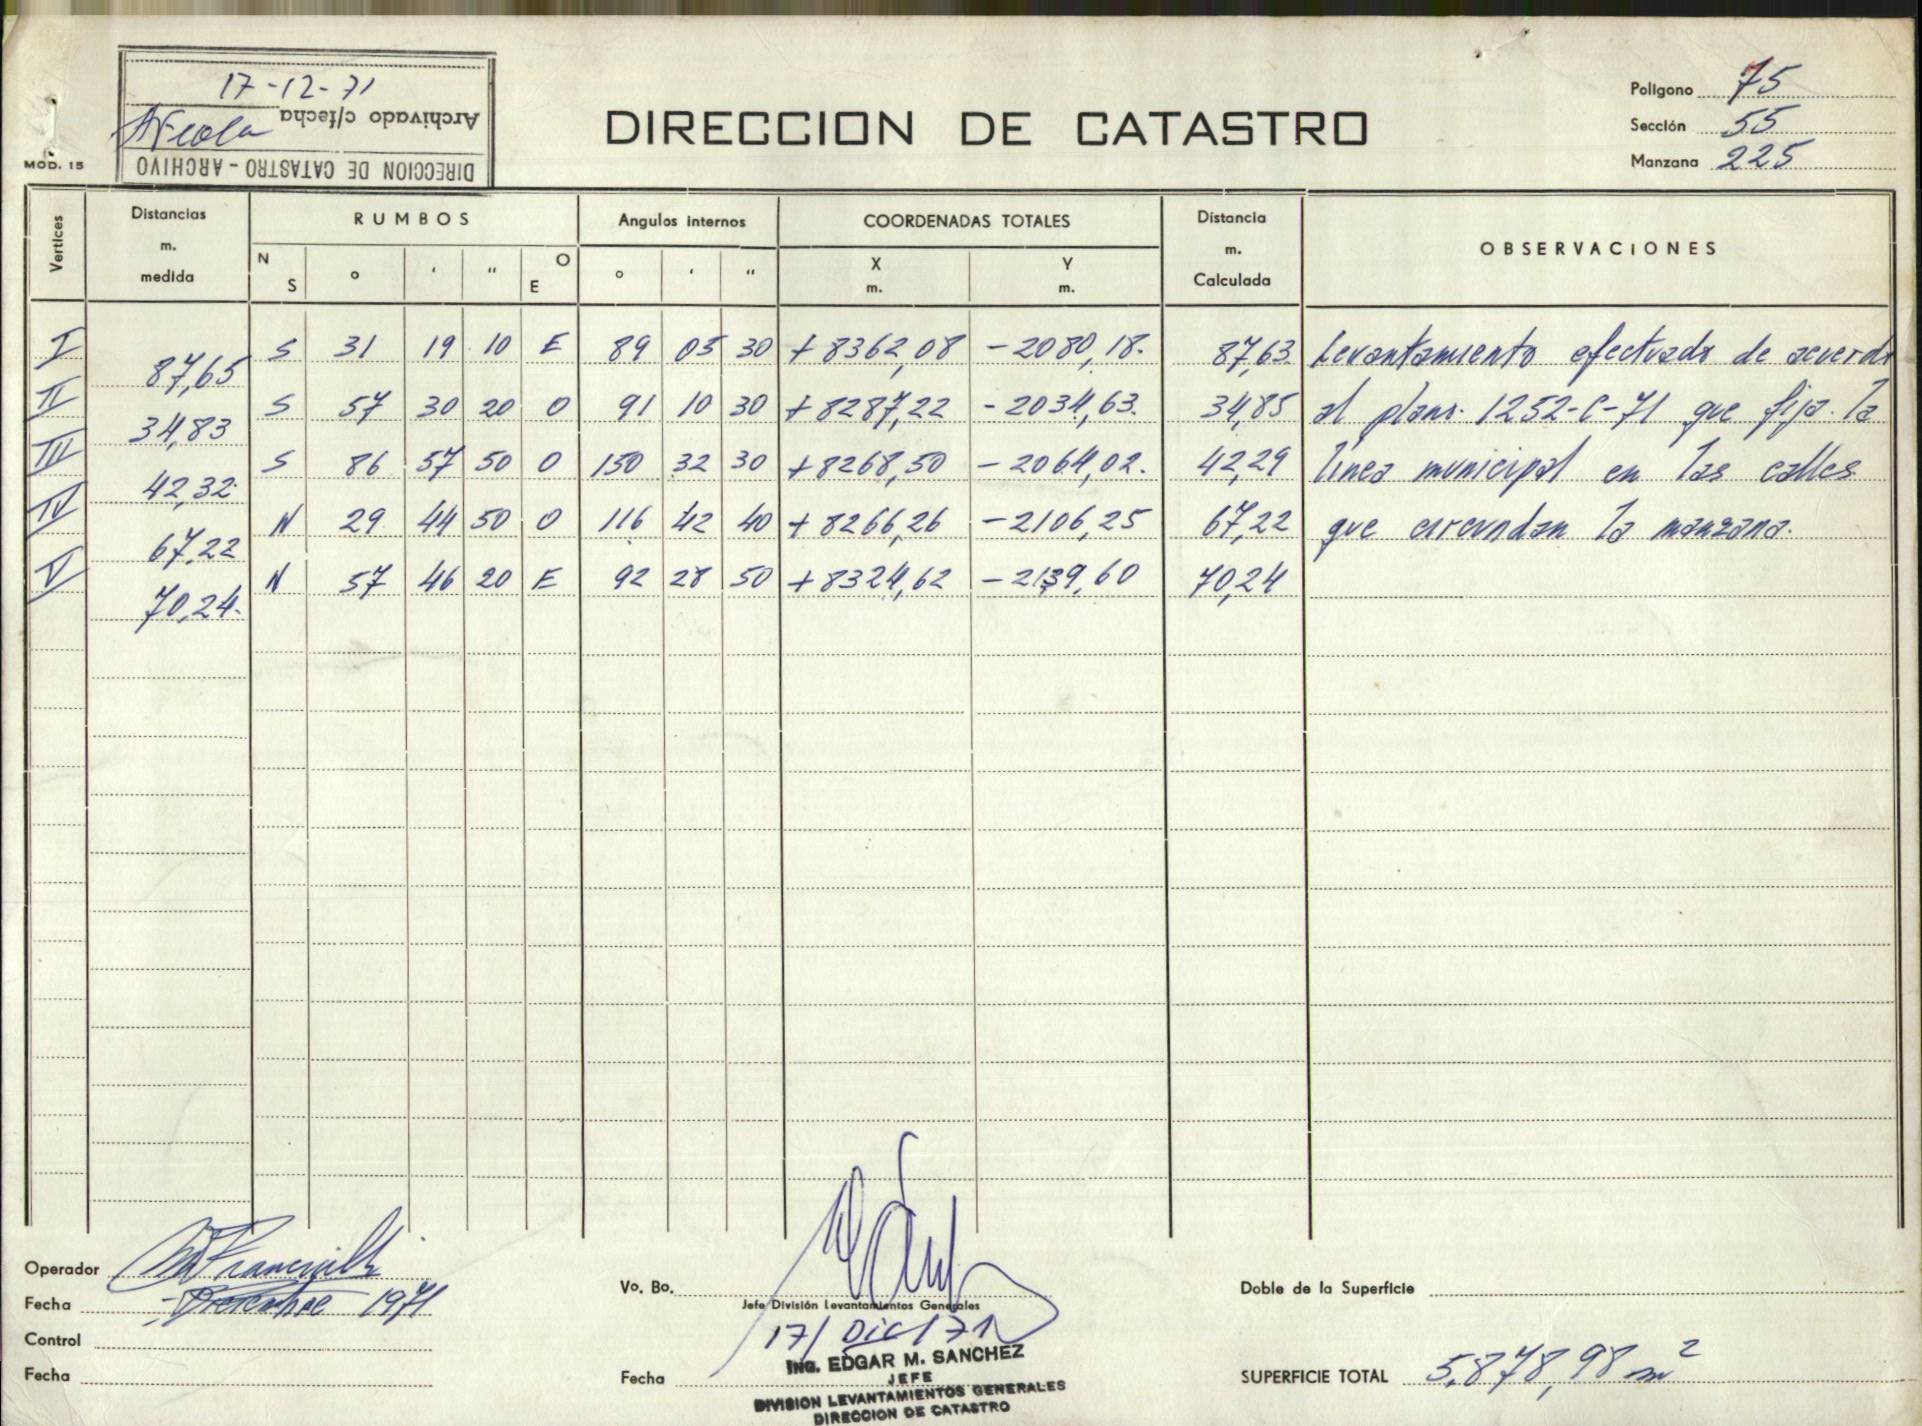 17-12-71
Archivado c/fecha
DIRECCION DE CATASTRO - ARCHIVO
MOD. 15
DIRECCION DE CATASTRO
Polígono 75
Sección 55
Manzana 225
Vertices Distancias m. medida RUMBOS Angulos internos COORDENADAS TOTALES Distancia m. Calculada OBSERVACIONES
N S ° ' " O E ° ' " X m. Y m.
I S 31 19 10 E 89 05 30 +8362,08 -2080,18. 87,63 Levantamiento efectuado de acuerdo
87,65
II S 57 30 20 O 91 10 30 +8287,22 -2034,63. 34,85 al plano. 1252-C-71 que fija la
34,83
III S 86 57 50 O 150 32 30 +8268,50 -2064,02. 42,29 linea municipal en las calles
42,32
IV N 29 44 50 O 116 42 40 +8266,26 -2106,25 67,22 que circundan la manzana.
67,22
V N 57 46 20 E 92 28 50 +8324,62 -2139,60 70,24
70,24.
Operador
Fecha Diciembre 1971
Control
Fecha
Vo. Bo.
Jefe División Levantamientos Generales
17/Dic/71
Fecha
ING. EDGAR M. SANCHEZ
JEFE
DIVISION LEVANTAMIENTOS GENERALES
DIRECCION DE CATASTRO
Doble de la Superficie
SUPERFICIE TOTAL 5.878,98 m²